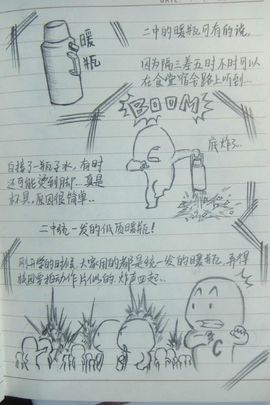 暖
瓶
二中的暖瓶可有的说。
因为隔三差五时不时可以
在食堂宿舍路上听到...
BOOM
底炸了..
白接了一瓶子水，有时
还可能烫到脚...真是
杯具，原因很简单..
二中统一发的低质暖瓶！
刚开学的时候，大家用的都是统一发的暖瓶，弄得
校园里拍动作片似的 炸声四起..